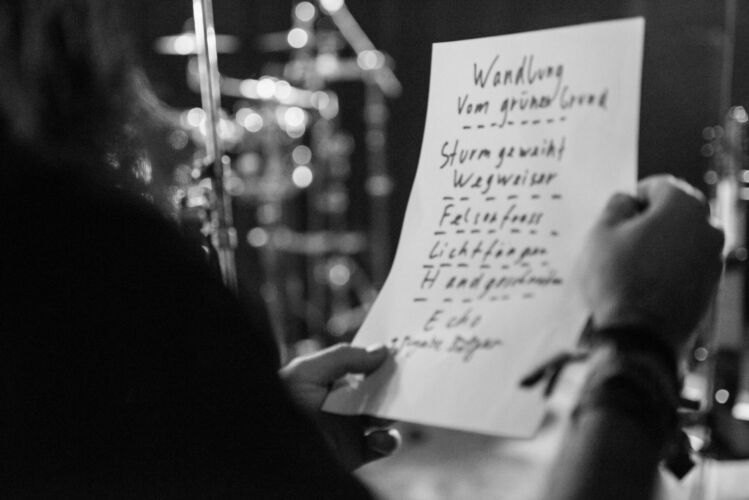 Wandlung
Vom grünen Grund
Sturmgeweiht
Wegweiser
Felsenfress
Lichtfänger
Handgeschrieben
Echo